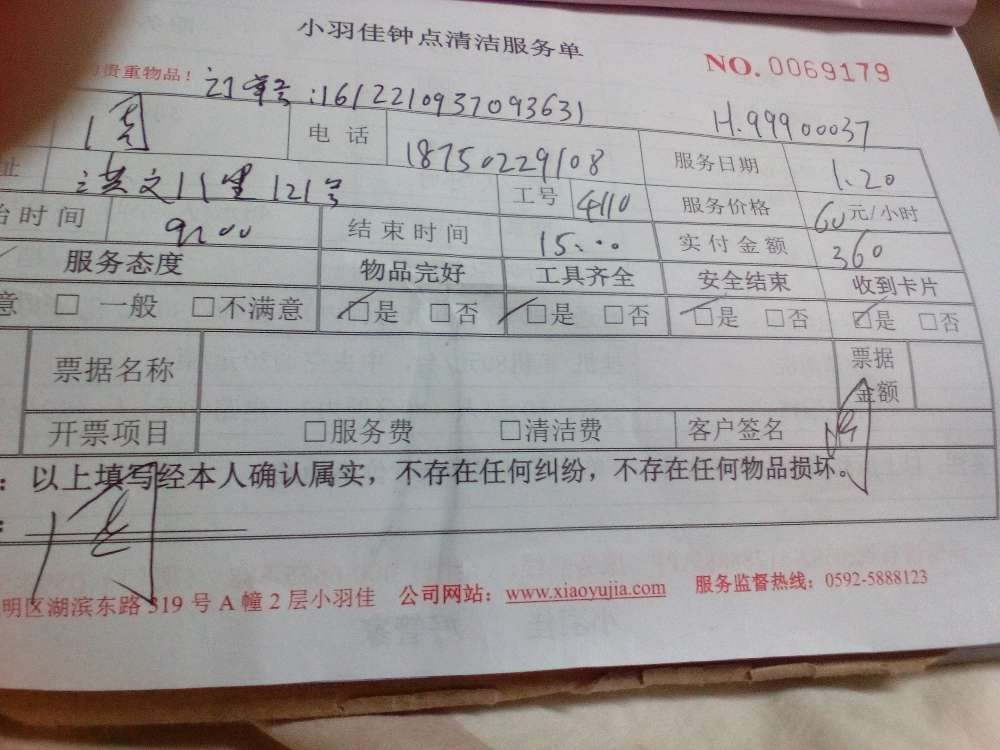 小羽佳钟点清洁服务单
NO. 0069179
贵重物品！ 订单号:161221093709363​1 H.99900037
周 电话 18750229108 服务日期 1.20
址 洪文八里121号 工号 4110 服务价格 60元/小时
时间 9:00 结束时间 15:00 实付金额 360
服务态度 物品完好 工具齐全 安全结束 收到卡片
意 □ 一般 □不满意 □是 □否 □是 □否 □是 □否 □是 □否
票据名称 票据金额
开票项目 □服务费 □清洁费 客户签名
：以上填写经本人确认属实，不存在任何纠纷，不存在任何物品损坏。
明区湖滨东路319号A幢2层小羽佳 公司网站：www.xiaoyujia.com 服务监督热线：0592-5888123